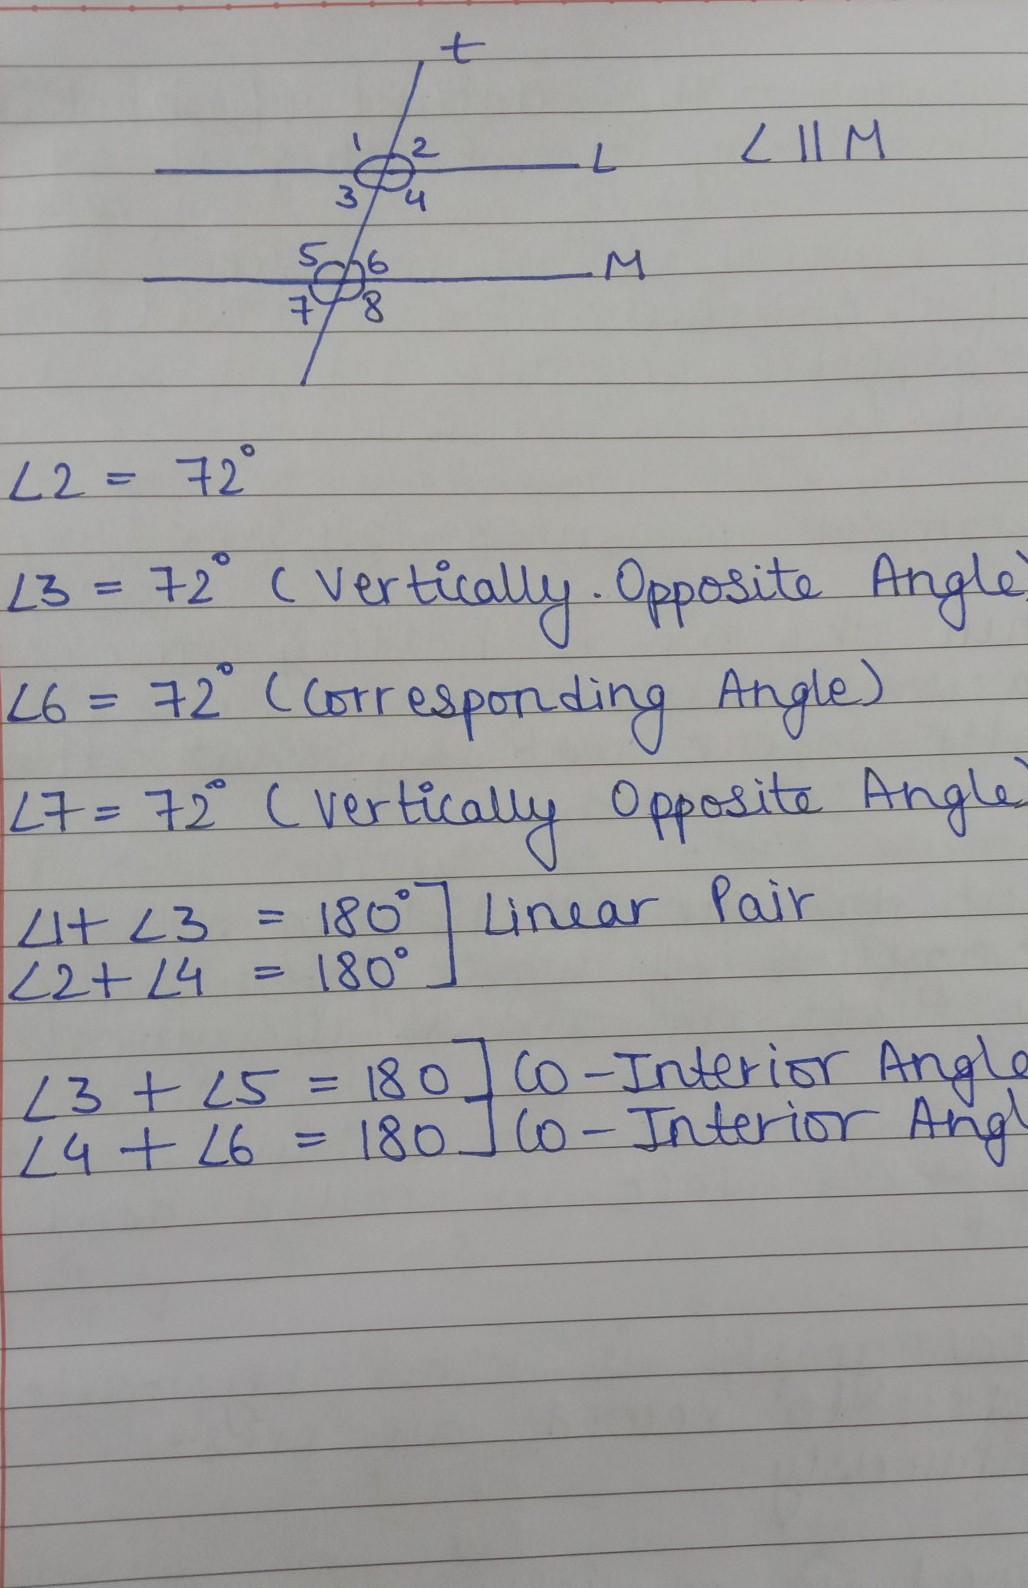 t
1 2
L
L || M
3 4
5 6
M
7 8
∠2 = 72°
∠3 = 72° (Vertically. Opposite Angle)
∠6 = 72° (Corresponding Angle)
∠7 = 72° (Vertically Opposite Angle)
∠1 + ∠3 = 180° ] Linear Pair
∠2 + ∠4 = 180°
∠3 + ∠5 = 180 ] Co-Interior Angle
∠4 + ∠6 = 180 ] Co-Interior Angl